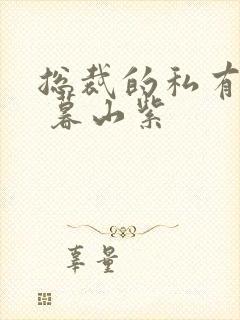 总裁的私有
暮山紫
辜量